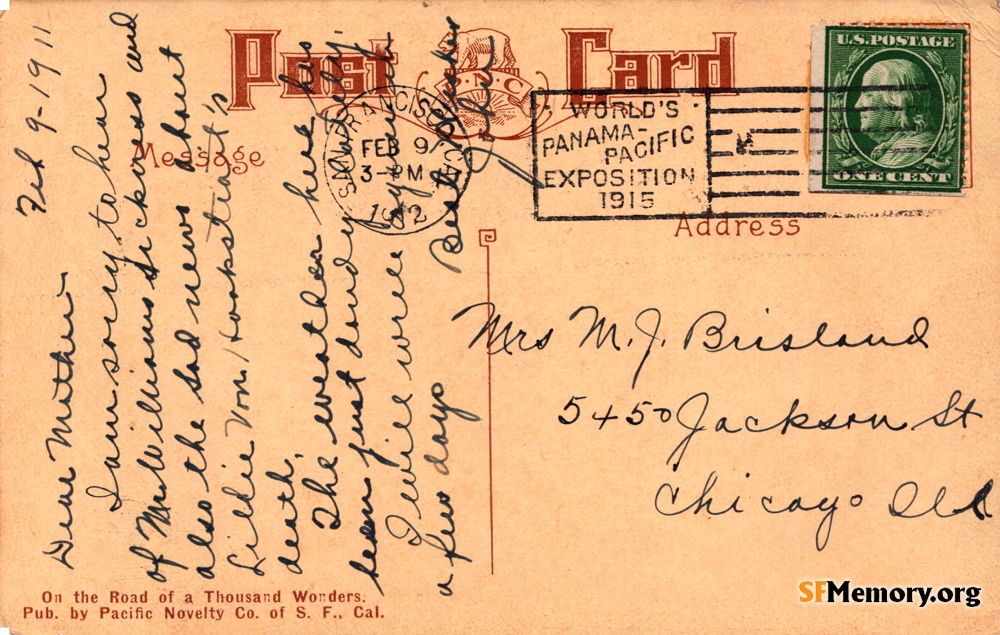 Post Card
P.N.C.
Message
Address
SAN FRANCISCO, CAL
FEB 9
3- PM
1912
WORLD'S
PANAMA-
PACIFIC
EXPOSITION
1915
U.S. POSTAGE
ONE CENT
Feb 9-1911
Dear Mother-
I am sorry to hear
of Mr Williams sickness and
also the sad news about
Lillie Von Hookstrat's
death.
The weather here has
been just dandy
I will write again
a few days
Best
Mrs M. J. Brisland
5450 Jackson St
Chicago Ill
On the Road of a Thousand Wonders.
Pub. by Pacific Novelty Co. of S. F., Cal.
SFMemory.org